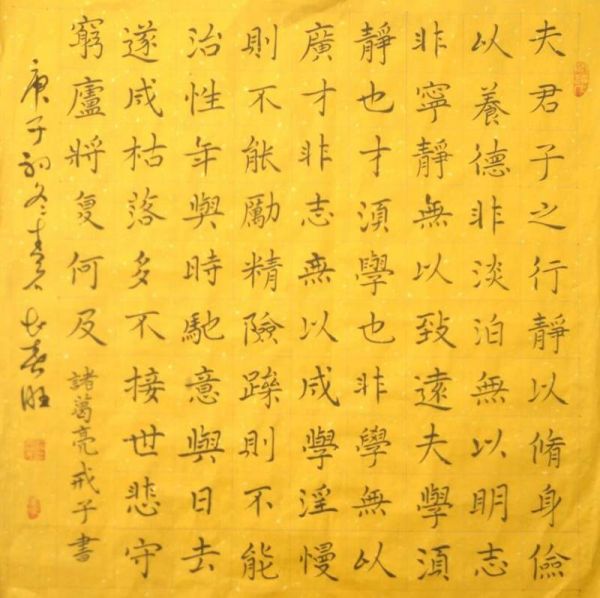 夫君子之行靜以脩身儉
以養德非淡泊無以明志
非寧靜無以致遠夫學須
靜也才須學也非學無以
廣才非志無以成學淫慢
則不能勵精險躁則不能
治性年與時馳意與日去
遂成枯落多不接世悲守
窮廬將复何及 諸葛亮戒子書
庚子初冬 春旺